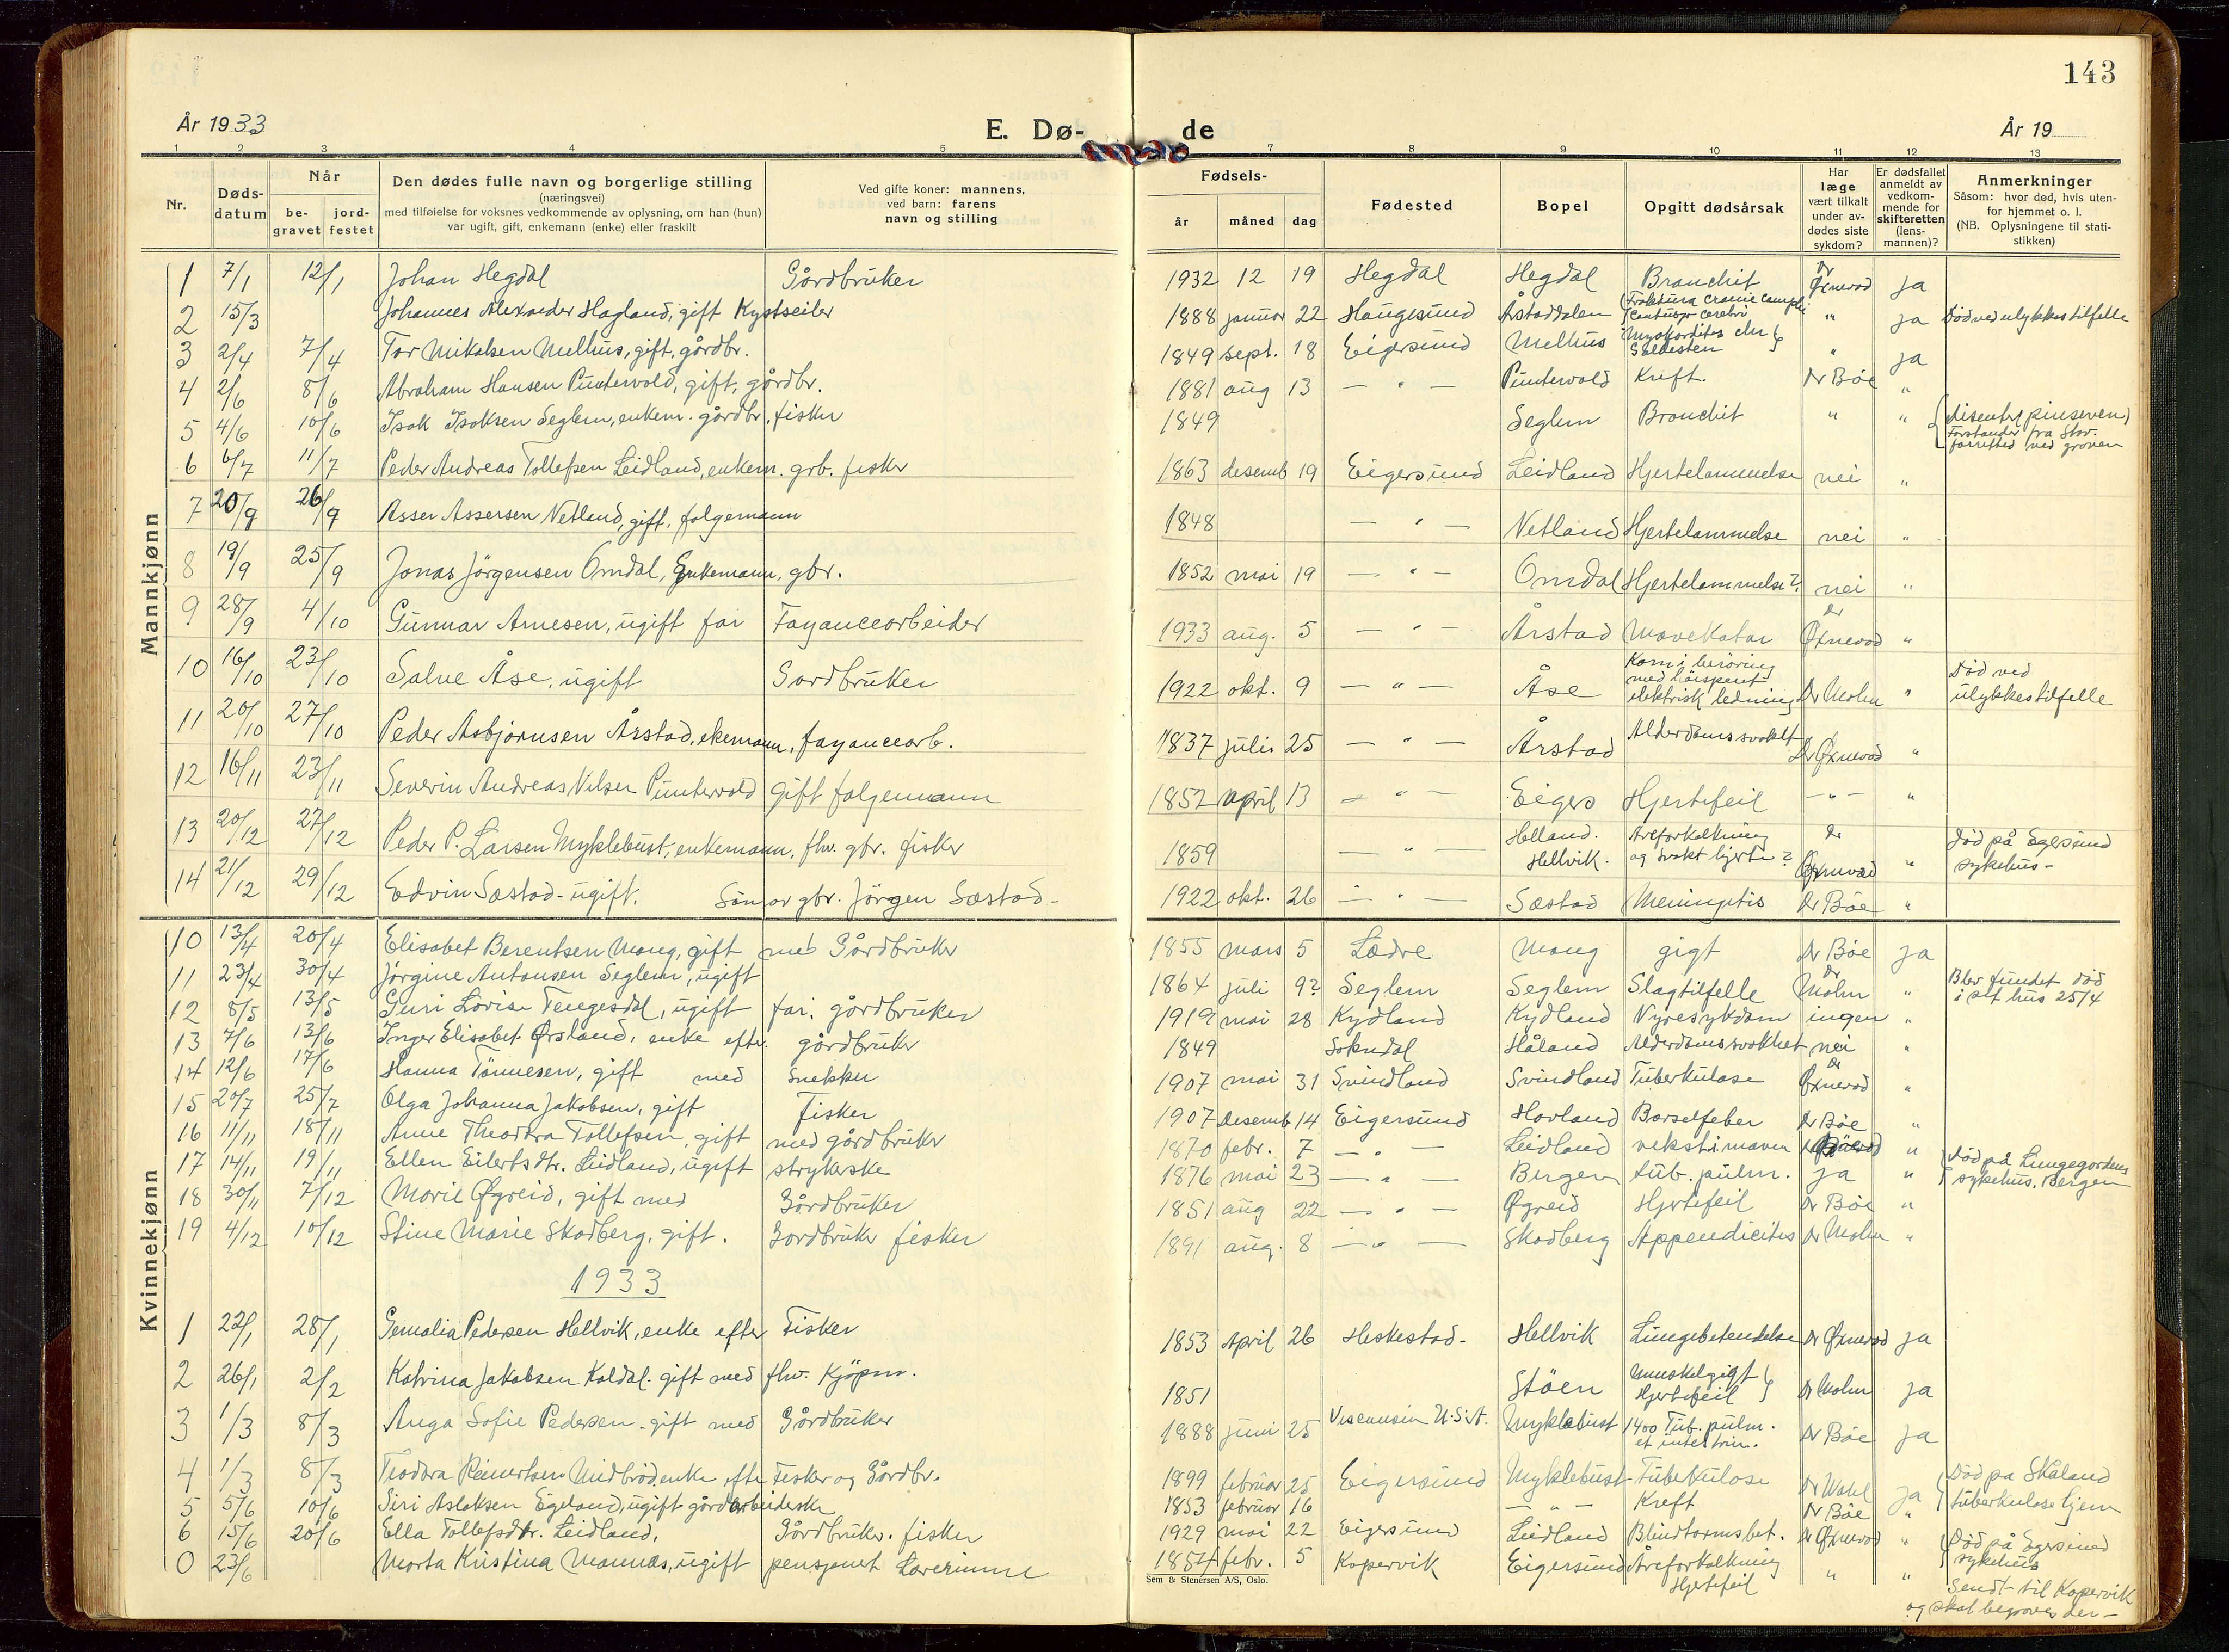 143
År 1933
E. Dø-
de
År 19
1 2 3 4 5 7 8 9 10 11 12 13
Nr.
Døds-
datum
Når
be-
gravet
jord-
festet
Den dødes fulle navn og borgerlige stilling
(næringsvei)
med tilføielse for voksnes vedkommende av oplysning, om han (hun)
var ugift, gift, enkemann (enke) eller fraskilt
Ved gifte koner: mannens,
ved barn: farens
navn og stilling
Fødsels-
år måned dag
Fødested
Bopel
Opgitt dødsårsak
Har
læge
vært tilkalt
under av-
dødes siste
sykdom?
Er dødsfallet
anmeldt av
vedkom-
mende for
skifteretten
(lens-
mannen)?
Anmerkninger
Såsom: hvor død, hvis uten-
for hjemmet o. l.
(NB. Oplysningene til stati-
stikken)
Mannkjønn
1 7/1 12/1 Johan Hegdal Gårdbruker 1932 12 19 Hegdal Hegdal Bronchit Dr Øxnevad ja
2 15/3 Johannes Alexander Hagland, gift Kystseiler 1888 januar 22 Haugesund Årstaddalen " ja Død ved ulykkestilfelle
3 2/4 7/4 Tor Mikalsen Melhus, gift, gårdbr. 1849 sept. 18 Eigersund Melhus " ja
4 2/6 8/6 Abraham Hansen Puntervold, gift, gårdbr. 1881 aug 13 — " — Puntervold Kreft. Dr Böe "
5 4/6 10/6 Isak Isaksen Seglem, enkem. gårdbr. fisker 1849 Seglem Bronchit " "
6 6/7 11/7 Peder Andreas Tollefsen Leidland, enkem. grb. fisker 1863 desemb 19 Eigersund Leidland Hjertelammelse nei "
7 20/9 26/9 Asser Assersen Netland, gift, folgemann 1848 — " — Netland Hjertelammelse nei "
8 19/9 25/9 Jonas Jörgensen Omdal, Enkemann, gbr. 1852 mai 19 — " — Omdal Hjertelammelse? nei "
9 28/9 4/10 Gunnar Arnesen, ugift far Fayancearbeider 1933 aug. 5 — " — Årstad Mavekatar Dr Øxnevad "
10 16/10 23/10 Salve Åse, ugift Gardbruker 1922 okt. 9 — " — Åse Kom i beröring
med höispent
elektrisk ledning Dr Molm " Död ved
ulykkestilfelle
11 20/10 27/10 Peder Asbjørnsen Årstad, ekemann, fayancearb. 1837 juli 25 — " — Årstad Alderdomssvakhet Dr Øxnevad "
12 16/11 23/11 Severin Andreas Nilsen Puntervold gift folgemann 1852 april 13 — " — Eigers Hjertefeil — " — "
13 20/12 27/12 Peder P. Larsen Myklebust, enkemann, fhv. gbr. fisker 1859 — " — Helland.
Hellvik. Åreforkalkning
og svakt hjerte? Dr Øxnevad " Död på Egersund
sykehus-
14 21/12 29/12 Edvin Sæstad - ugift. Sön av gbr. Jörgen Sæstad - 1922 okt. 26 — " — Sæstad Meningitis Dr Böe "
Kvinnekjønn
10 13/4 20/4 Elisabet Berentsen Mong, gift med Gårdbruker 1855 mars 5 Lædre Mong gigt Dr Böe ja
11 23/4 30/4 Jörgine Antonsen Seglem, ugift 1864 juli 9? Seglem Seglem Slagtilfelle Dr Molm " Blev fundet död
i sitt hus 25/4
12 8/5 13/5 Guri Lovise Tengesdal, ugift far. gårdbruker 1919 mai 28 Kydland Kydland Nyresykdom ingen "
13 7/6 13/6 Inger Elisabet Ørsland, enke efter. gårdbruker 1849 Sokndal Håland Alderdomssvakhet nei "
14 12/6 17/6 Hanna Tönnesen, gift med Snekker 1907 mai 31 Svindland Svindland Tuberkulose Dr Øxnevad "
15 20/7 25/7 Olga Johanna Jakobsen, gift Fisker 1907 desemb 14 Eigersund Hovland Barselfeber Dr Böe "
16 11/11 18/11 Anne Theodora Tollefsen, gift med gårdbruker 1870 febr. 7 — " — Leidland vekst i maven "
17 14/11 19/11 Ellen Eilertsdtr. Leidland, ugift strykerske 1876 mai 23 — " — Bergen tub. pulm. ja " Död på Lungegårdens
sykehus, Bergen
18 30/11 7/12 Marie Øgreid, gift med Gårdbruker 1851 aug 22 — " — Øgreid Hjertefeil Dr Böe "
19 4/12 10/12 Stine Marie Skadberg, gift. Gardbruker fisker 1891 aug. 8 — " — Skadberg Appendicitis Dr Molm "
1933
1 22/1 28/1 Pedersen Hellvik, enke efter Fisker 1853 April 26 Heskestad- Hellvik Lungebetendelse Dr Øxnevad ja
2 26/1 2/2 Katrina Jakobsen Koldal. gift med fhv. Kjöpm. 1851 Stöen Muuskelgigt
Hjertefeil Dr Molm ja
3 1/3 8/3 Anga Sofie Pedersen - gift med Gårdbruker 1888 juni 25 Visconsin U.S.A. Myklebust Tub. pulm.
et intestin. Dr Böe ja
4 1/3 8/3 Teodora Reinertsen Midbröd enke efter Fisker og Gårdbr. 1899 februar 25 Eigersund Myklebust Tuberkulose Dr Wahl ja Död på Skåland
tuberkulosehjem
5 5/6 10/6 Siri Aslaksen Egeland, ugift gårdarbeiderske 1853 februar 16 — " — Kreft Dr Böe "
6 15/6 20/6 Ella Tollefsdtr. Leidland, Gårdbruker. fisker 1929 mai 22 Eigersund Leidland Blindtarmsbet. Dr Øxnevad " Död på Egersund
sykehus
0 23/6 Marta Kristina Mannes, ugift pensjonert Lærerinne 1854 febr. 5 Kopervik Eigersund Åreforkalkning
Hjertefeil " " Sendt til Kopervik
og skal begraves der -
Sem & Stenersen A/S, Oslo.